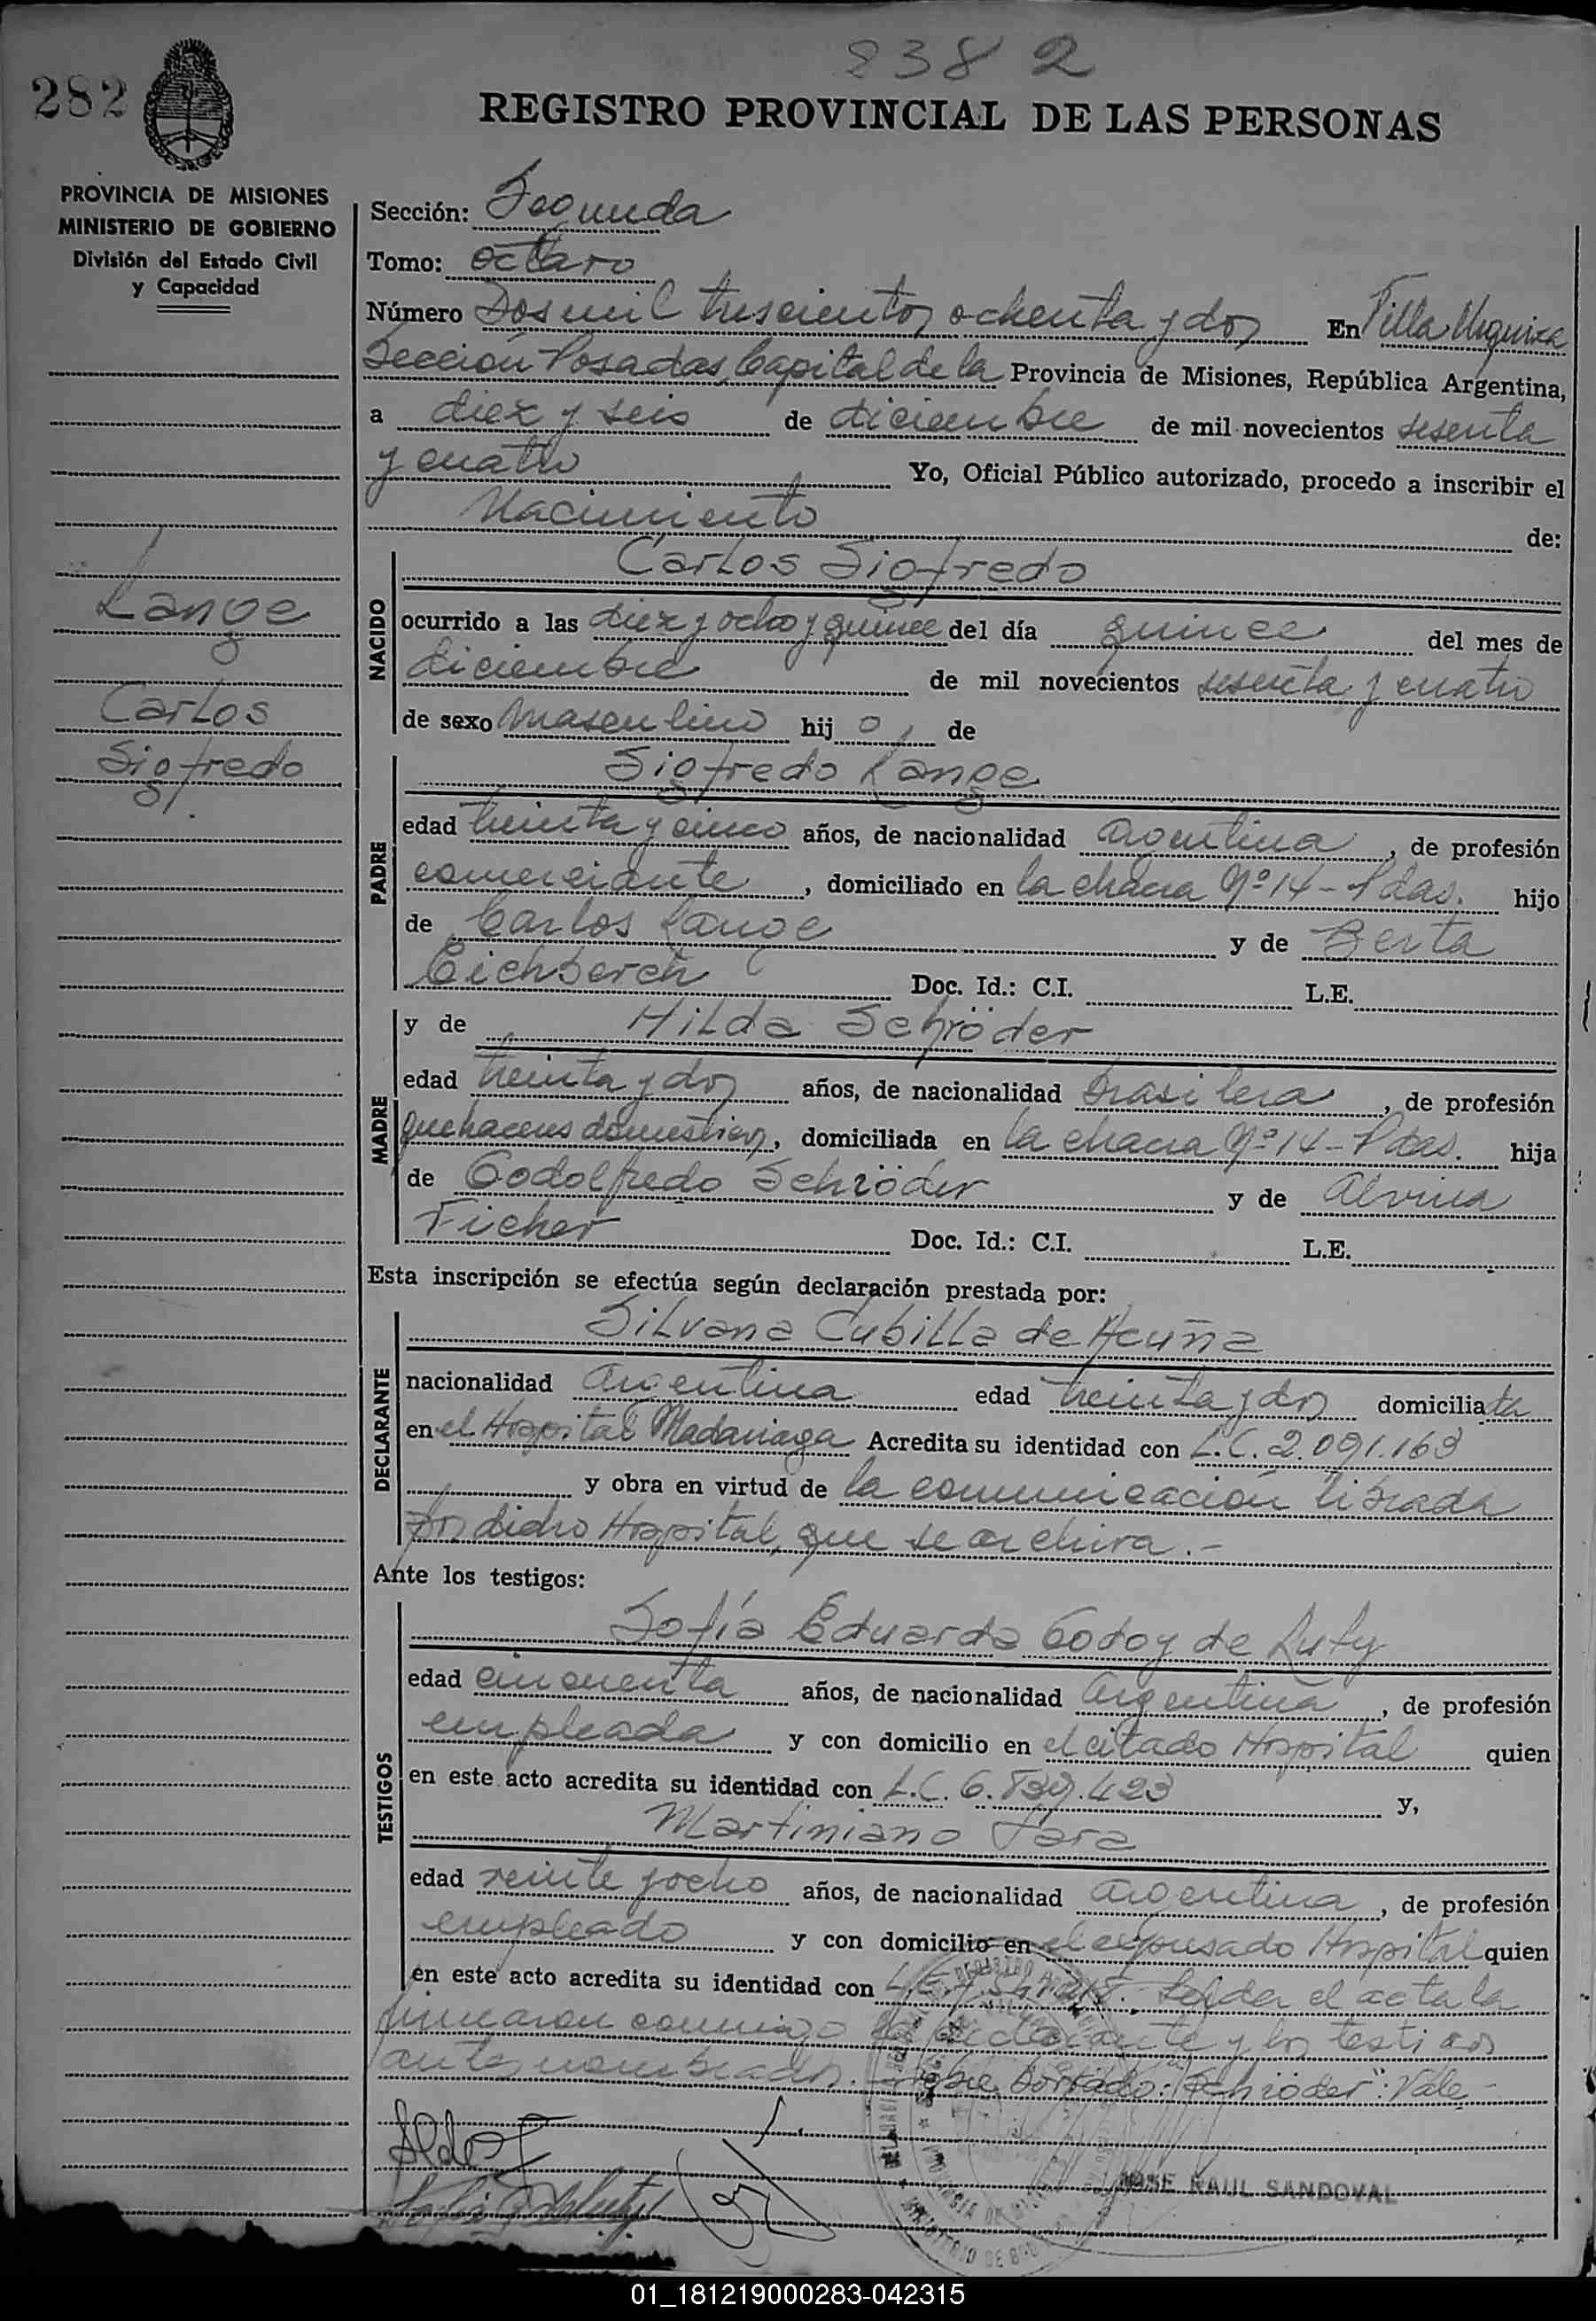 2382
282
REGISTRO PROVINCIAL DE LAS PERSONAS
PROVINCIA DE MISIONES
MINISTERIO DE GOBIERNO
División del Estado Civil
y Capacidad
Lange
Carlos
Sigfredo
Sección: Segunda
Tomo: octavo
Número Dos mil trescientos ochenta y dos En Villa Urquiza
Sección Posadas, Capital de la Provincia de Misiones, República Argentina,
a diez y seis de diciembre de mil novecientos sesenta
y cuatro Yo, Oficial Público autorizado, procedo a inscribir el
Nacimiento de:
NACIDO
Carlos Sigfredo
ocurrido a las diez y ocho y quince del día quince del mes de
diciembre de mil novecientos sesenta y cuatro
de sexo masculino hij o, de
PADRE
Sigfredo Lange
edad treinta y cinco años, de nacionalidad argentina, de profesión
comerciante, domiciliado en la chacra Nº 14 - Pdas. hijo
de Carlos Lange y de Berta
Eichberch Doc. Id.: C.I. L.E.
MADRE
y de Hilda Schröder
edad treinta y dos años, de nacionalidad brasilera, de profesión
quehaceres domésticos, domiciliada en la chacra Nº 14 - Pdas. hija
de Godolfredo Schröder y de Alvina
Ficher Doc. Id.: C.I. L.E.
Esta inscripción se efectúa según declaración prestada por:
DECLARANTE
Silvana Cubilla de Acuña
nacionalidad argentina edad treinta y dos domiciliada
en el Hospital Madariaga Acredita su identidad con L.C. 2.091.163
y obra en virtud de la comunicación librada
por dicho Hospital, que se archiva.-
Ante los testigos:
TESTIGOS
Sofía Eduarda Godoy de Luty
edad cincuenta años, de nacionalidad argentina, de profesión
empleada y con domicilio en el citado Hospital quien
en este acto acredita su identidad con L.C. 6.839.423 y,
Martiniano Jara
edad veinte y ocho años, de nacionalidad argentina, de profesión
empleado y con domicilio en el expresado Hospital quien
en este acto acredita su identidad con L.E. Leída el acta la
firmaron conmigo la declarante y los testigos
antes nombrados.- Sobre borrado: "Schröder": Vale-
JOSE RAUL SANDOVAL
01_181219000283-042315